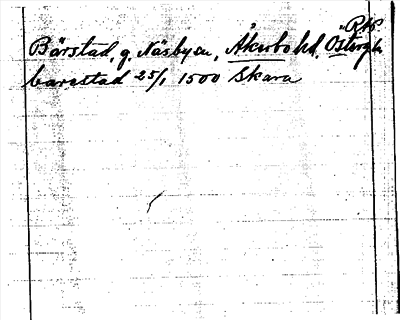 RAP
Bärstad, g. Näsby sn, Åkerbo hd, Östergl.
barastad 25/1 1500 Skara